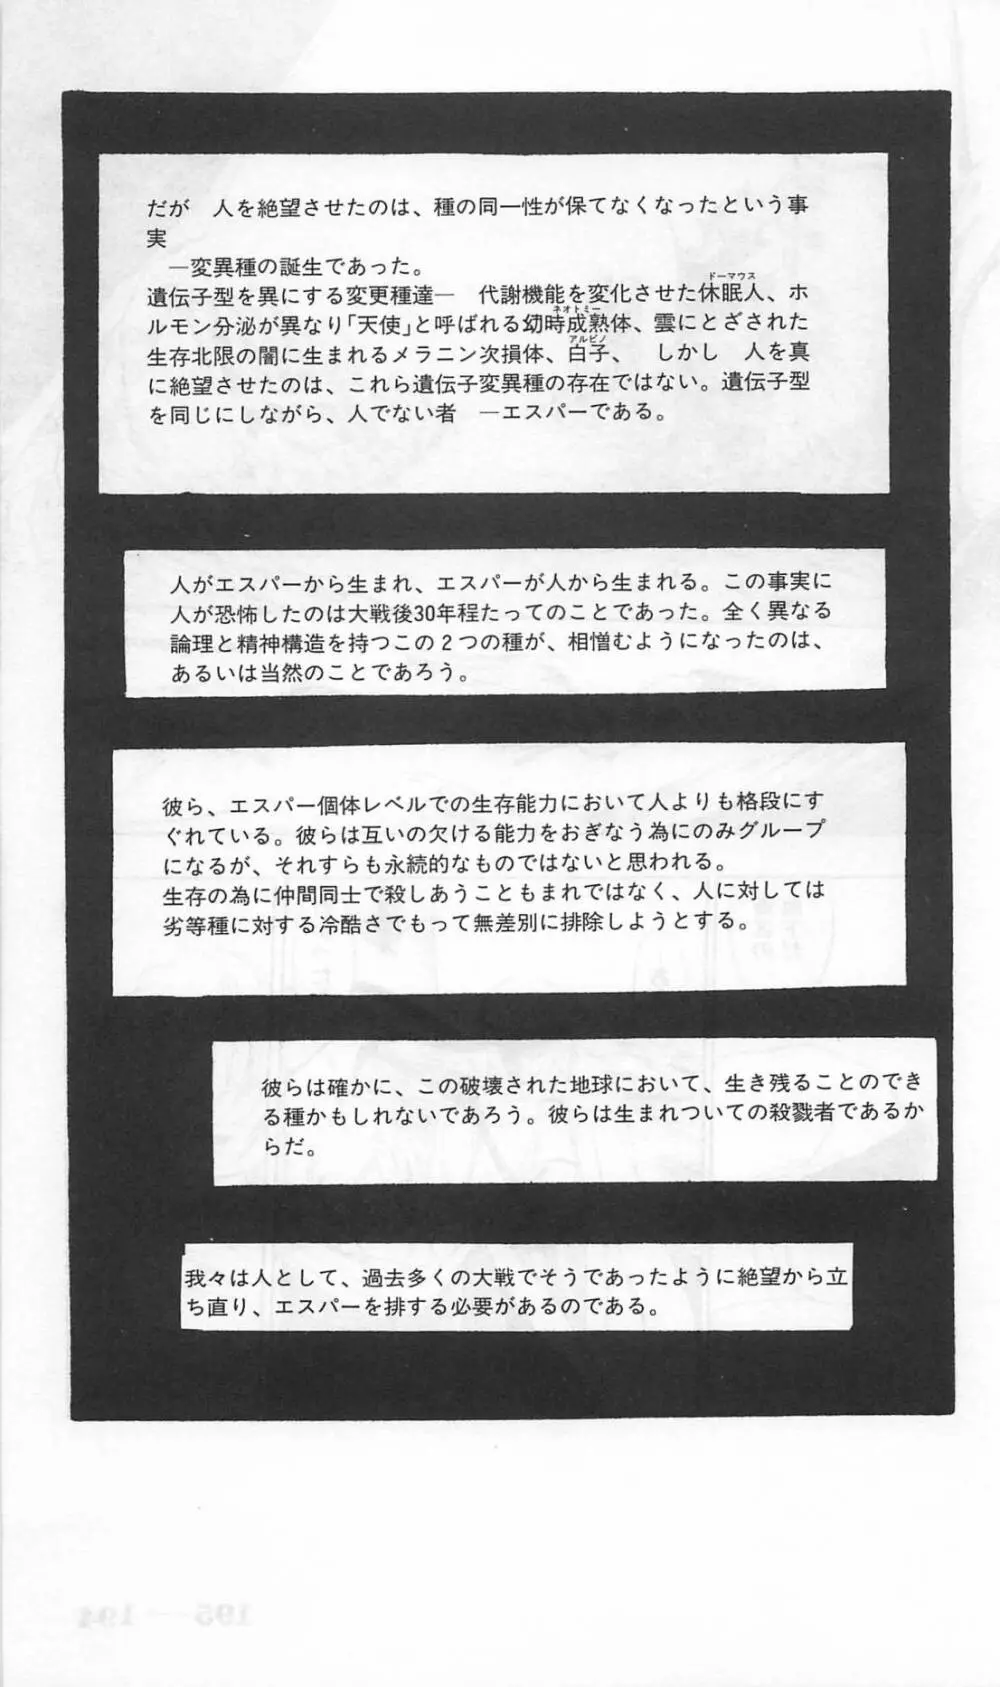 だが　人を絶望させたのは、種の同一性が保てなくなったという事
実
　―変異種の誕生であった。
ドーマウス
遺伝子型を異にする変更種達―　代謝機能を変化させた休眠人、ホ
ネオトミー
ルモン分泌が異なり「天使」と呼ばれる幼時成熟体、雲にとざされた
アルビノ
生存北限の闇に生まれるメラニン次損体、白子、　しかし　人を真
に絶望させたのは、これら遺伝子変異種の存在ではない。遺伝子型
を同じにしながら、人でない者　―エスパーである。
人がエスパーから生まれ、エスパーが人から生まれる。この事実に
人が恐怖したのは大戦後30年程たってのことであった。全く異なる
論理と精神構造を持つこの２つの種が、相憎むようになったのは、
あるいは当然のことであろう。
彼ら、エスパー個体レベルでの生存能力において人よりも格段にす
ぐれている。彼らは互いの欠ける能力をおぎなう為にのみグループ
になるが、それすらも永続的なものではないと思われる。
生存の為に仲間同士で殺しあうこともまれではなく、人に対しては
劣等種に対する冷酷さでもって無差別に排除しようとする。
彼らは確かに、この破壊された地球において、生き残ることのでき
る種かもしれないであろう。彼らは生まれついての殺戮者であるか
らだ。
我々は人として、過去多くの大戦でそうであったように絶望から立
ち直り、エスパーを排する必要があるのである。